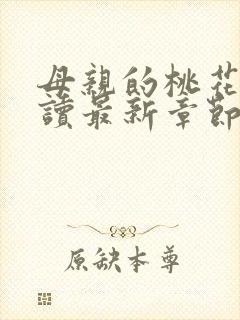 母親的桃花
讀最新章節
原缺本尊